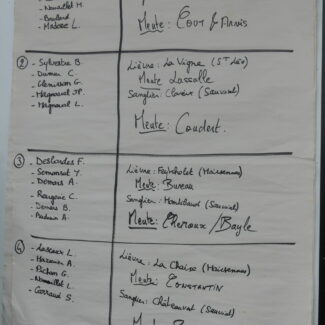 - Nouaillet M.
- Boulard
- Madose L.
Meute: COUT & Amis
②
- Sylvestre B.
- Dumai C
- Glemisson G.
- Meynard JP.
- Meynard L.
Lièvre: La Vigne (St Léo)
Meute Lassalle
Sanglier: Clavieux (Sauvant)
Meute: Coudert.
③
- Deslandes F.
- Sommant Y.
- Demars A.
- Rougerie C
- Demars B.
Lièvre: (Maisonnais)
Meute: Bureau
Sanglier: Montibaud (Sauvant)
Meute: Chevaux / Bayle
④
- Lascaux L.
- Mazeaux A.
- Pichon G.
- Nouaillet L.
- Carraud S.
Lièvre: La Chaize (Maisonnais)
Meute: CONSTANTIN
Sanglier: Châteauvert (Sauvat)
Meute: